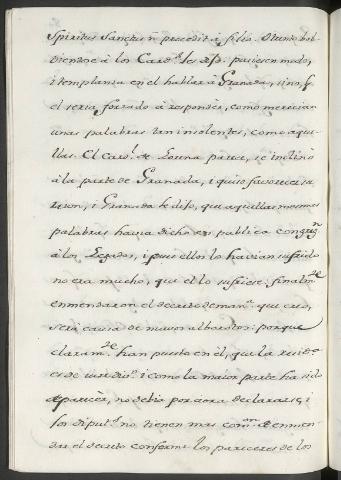 Spiritus Sanctus n procedit à filio. Otento bol-
viendose à los Card.s les dijo. pusiesen modo,
i templanza en el hablar à Granada, sino, q
el seria forzado à responder, como merecian
unas palabras tan insolentes, como aque-
llas. El Card.l de Lorena parece, se inclinò
à la parte de Granada, i quiso favorecer su
razon, i Granada le dijo, que aquellas mesmas
palabras havia dicho en publica congreg.n
à los Legados, i pues ellos lo havian sufrido
no era mucho, que el lo sufriese. finalm.te
enmendaron el decreto de man.a que creo,
será causa de maior alboroto: porque
claram.te han puesto en èl, que la resid.a
es de iure div.o i como la maior parte ha sido
de parecèr, no debia por aora declararse, i
los diput.s no tienen mas com.on de enmen-
dar el decreto conforme los pareceres de los